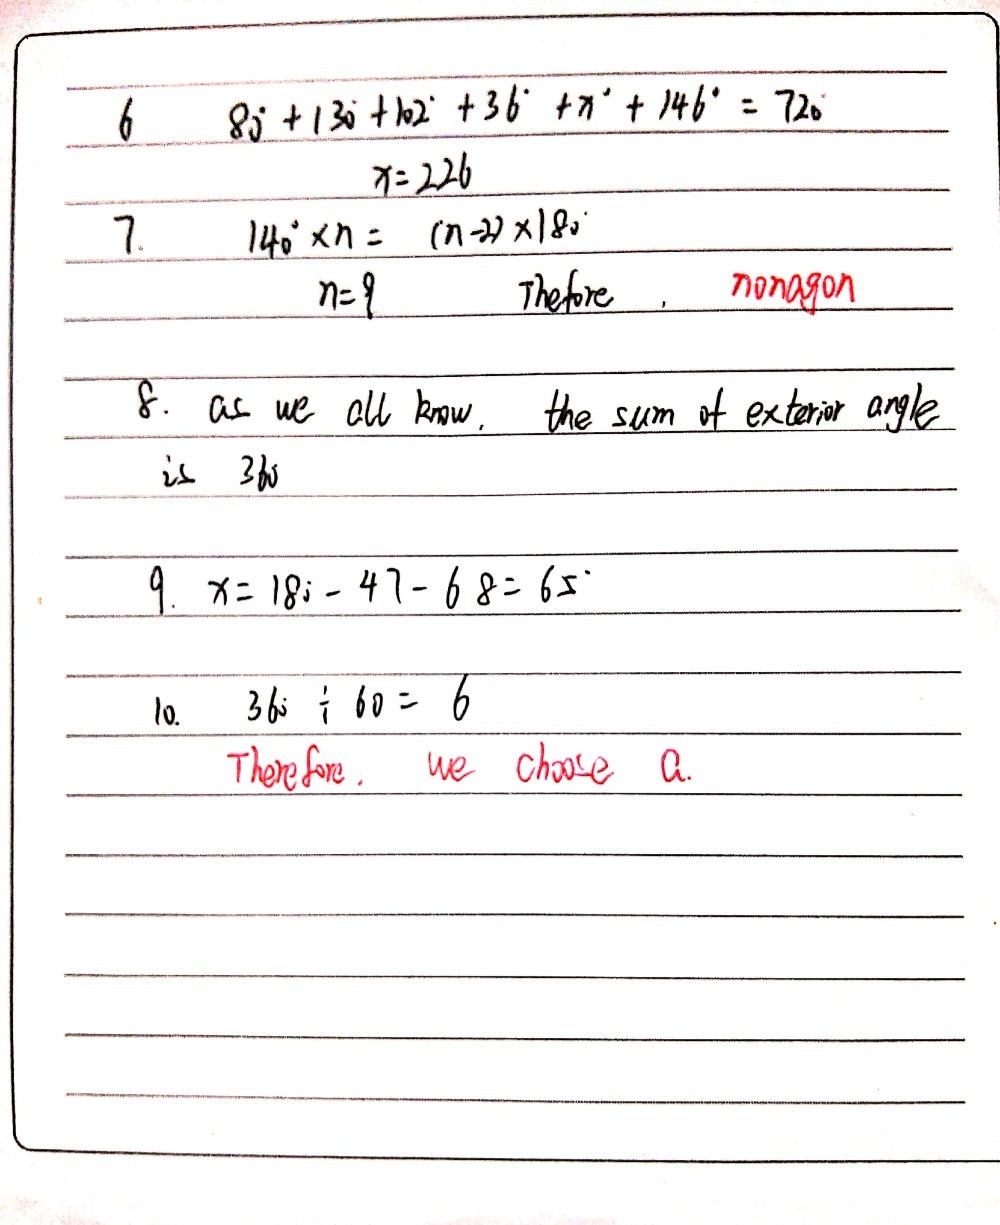 6 80° + 130° + 102° + 36° + x° + 146° = 720°
x = 226
7. 140° × n = (n-2) × 180°
n = 9 Thefore, nonagon
8. as we all know, the sum of exterior angle
is 360
9. x = 180 - 47 - 68 = 65°
10. 360 ÷ 60 = 6
Therefore, we choose a.